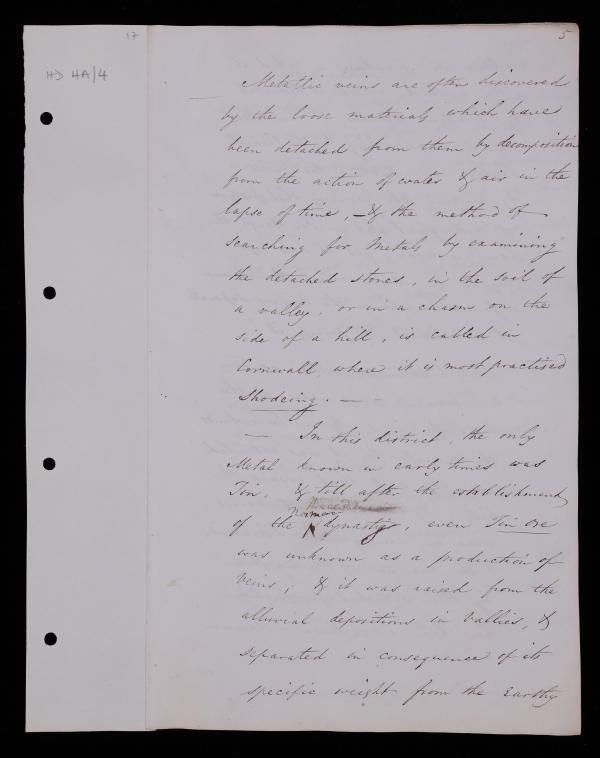 17
5
HD 4A/4
Metallic veins are often discovered
by the loose materials which have
been detached from them by decomposition
from the action of water & air in the
lapse of time, — & the method of
searching for Metals by examining
the detached stones, in the soil of
a valley, or in a chasm on the
side of a hill, is called in
Cornwall, where it is most practised
Shodeing. —
— In this district, the only
Metal known in early times was
Tin, & till after the establishment
Norman
of the dynasty, even Tin Ore
was unknown as a production of
Veins; & it was raised from the
alluvial depositions in Vallies, &
separated in consequence of its
specific weight from the Earthy